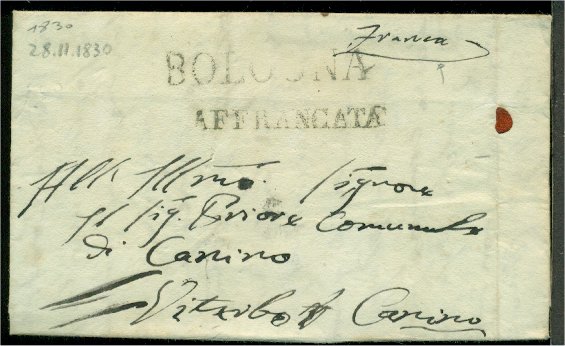 1830
28.11.1830
Franca
BOLOGNA
AFFRANCATA
All Illmo. Signore
Il Sig Priore Comunale
di Canino
Viterbo Canino